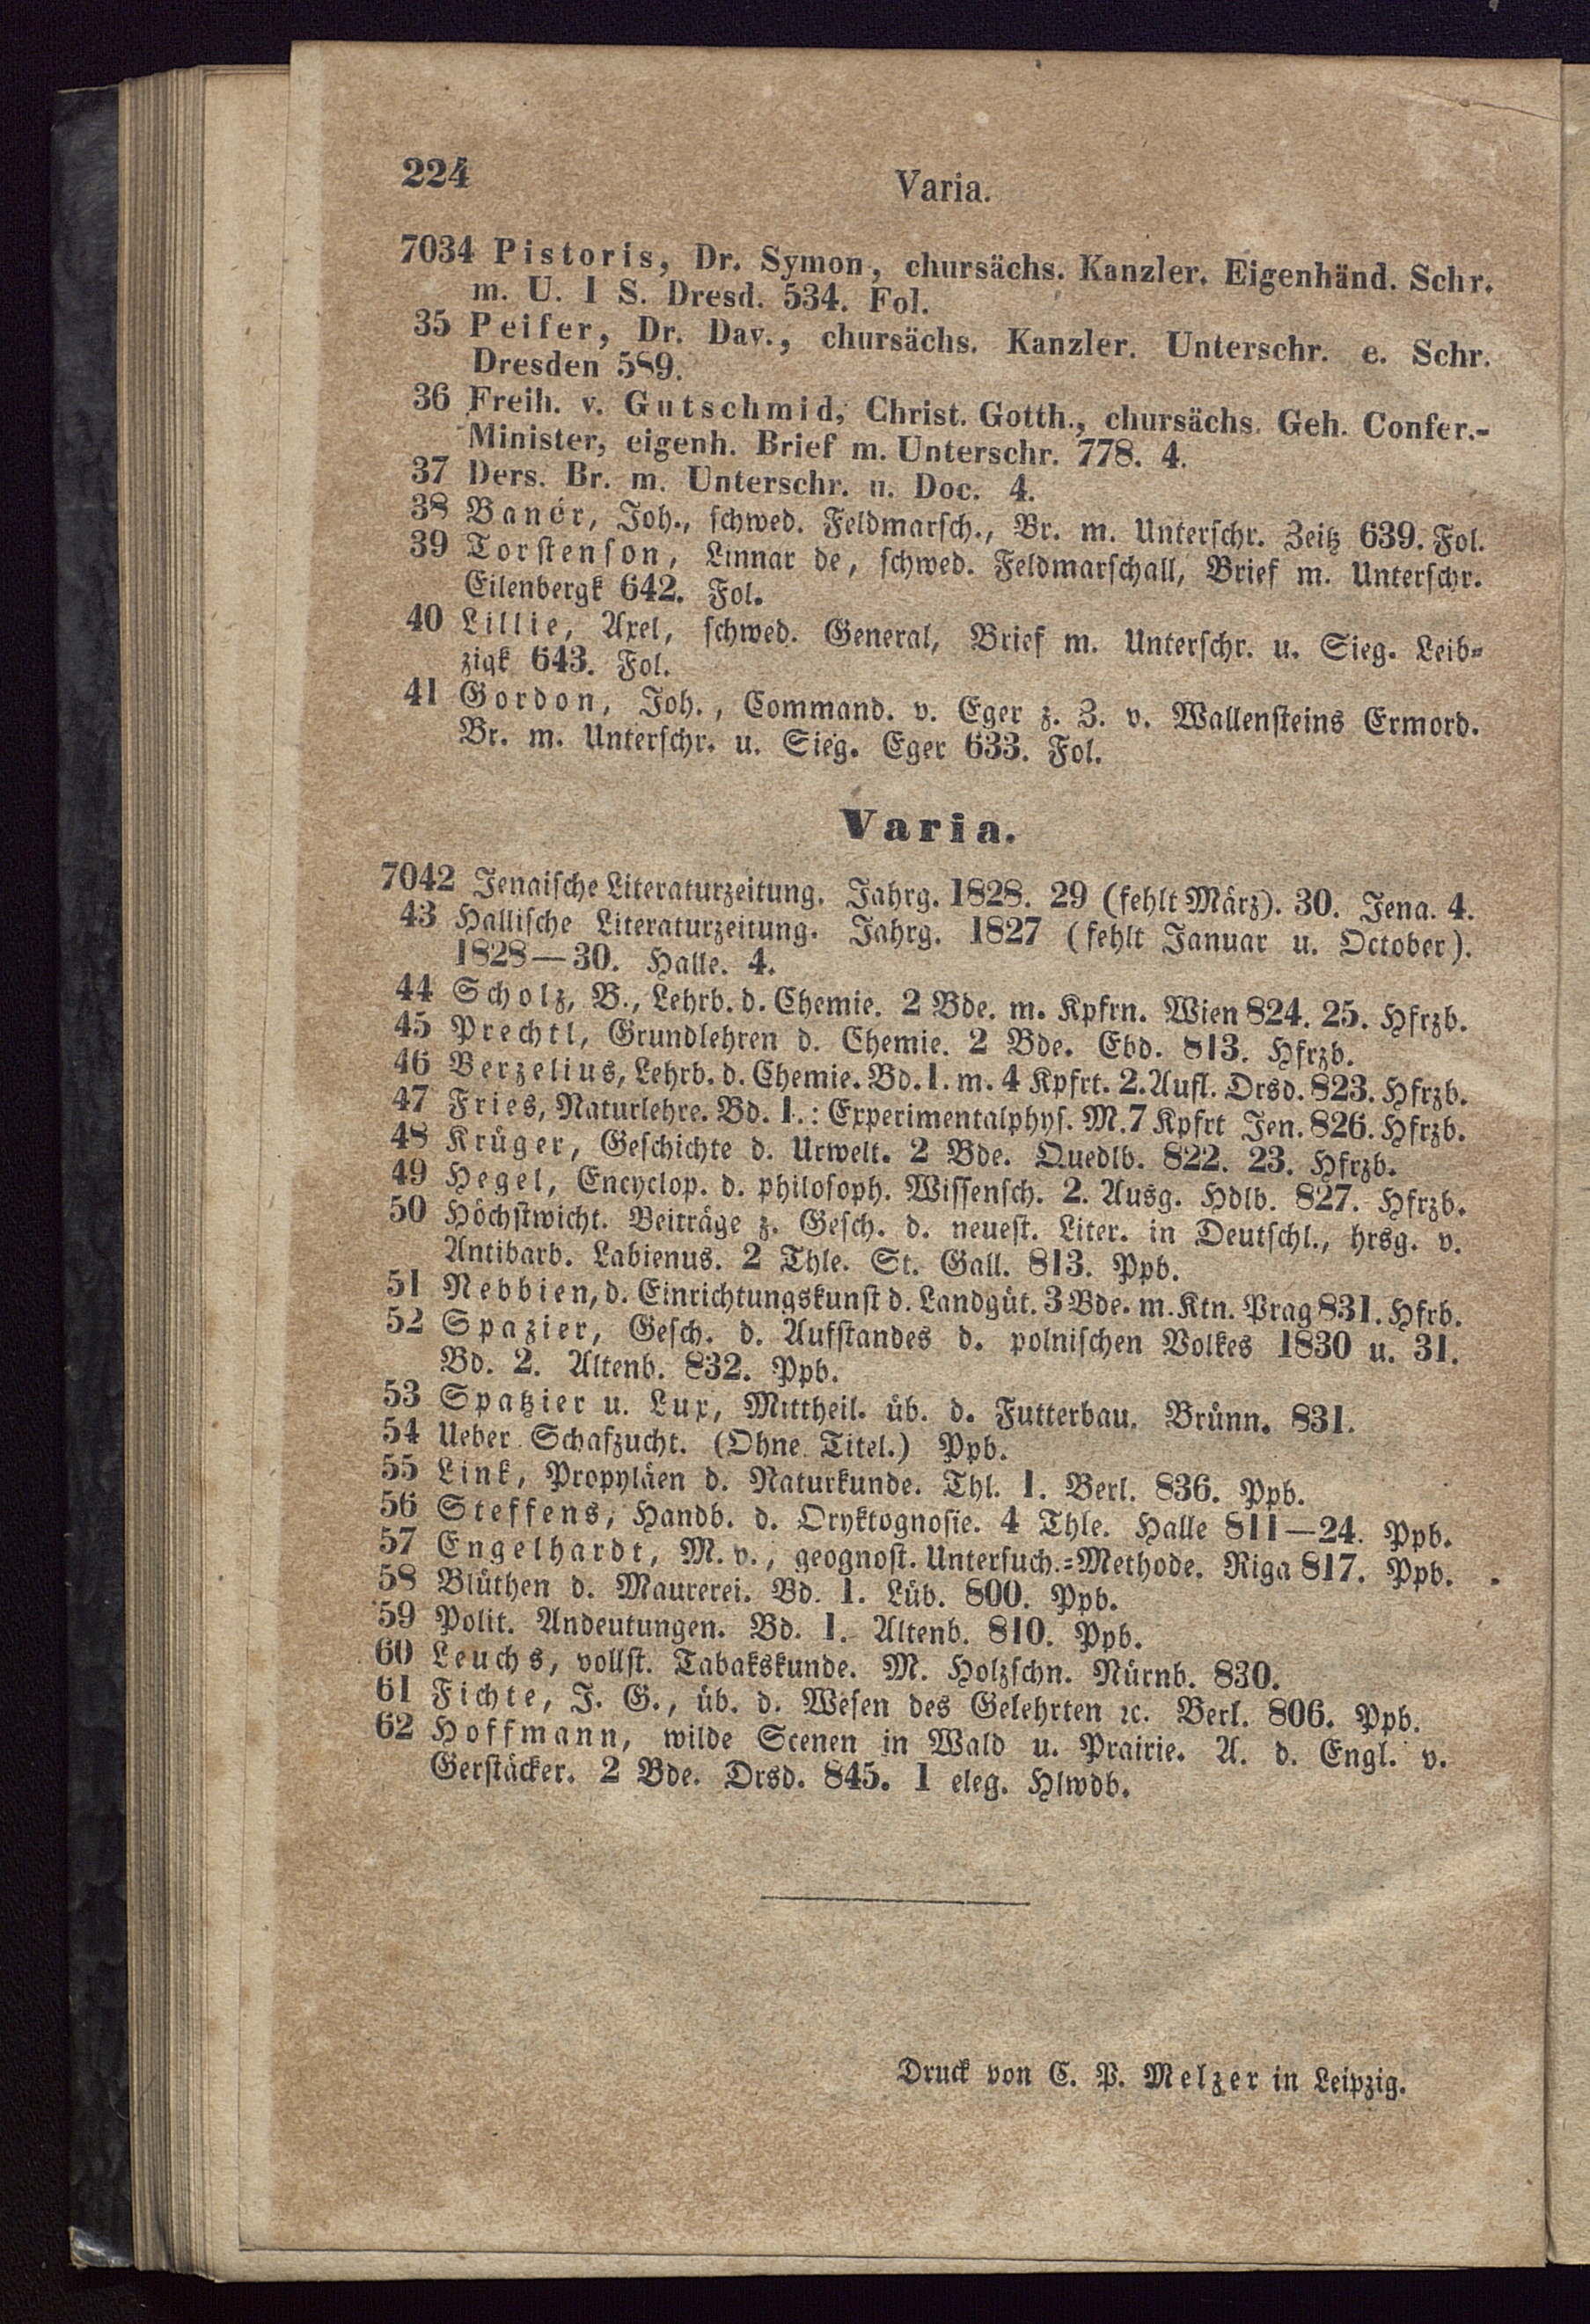 224
Varia.
7034 Pistoris, Dr. Symon, chursächs. Kanzler. Eigenhänd. Schr.
m. U. 1 S. Dresd. 534. Fol.
35 Peifer, Dr. Dav., chursächs. Kanzler. Unterschr. e. Schr.
Dresden 589.
36 Freih. v. Gutschmid, Christ. Gotth., chursächs. Geh. Confer.-
Minister, eigenh. Brief m. Unterschr. 778. 4.
37 Ders. Br. m. Unterschr. u. Doc. 4.
38 Banér, Joh., schwed. Feldmarsch., Br. m. Unterschr. Zeitz 639. Fol.
39 Torstenson, Linnar de, schwed. Feldmarschall, Brief m. Unterschr.
Eilenbergk 642. Fol.
40 Lillie, Axel, schwed. General, Brief m. Unterschr. u. Sieg. Leib-
zigk 643. Fol.
41 Gordon, Joh., Command. v. Eger z. Z. v. Wallensteins Ermord.
Br. m. Unterschr. u. Sieg. Eger 633. Fol.
Varia.
7042 Jenaische Literaturzeitung. Jahrg. 1828. 29 (fehlt März). 30. Jena. 4.
43 Hallische Literaturzeitung. Jahrg. 1827 (fehlt Januar u. October).
1828—30. Halle. 4.
44 Scholz, B., Lehrb. d. Chemie. 2 Bde. m. Kpfrn. Wien 824. 25. Hfrzb.
45 Prechtl, Grundlehren d. Chemie. 2 Bde. Ebd. 813. Hfrzb.
46 Berzelius, Lehrb. d. Chemie. Bd. 1. m. 4 Kpfrt. 2. Aufl. Drsd. 823. Hfrzb.
47 Fries, Naturlehre. Bd. 1.: Experimentalphys. M. 7 Kpfrt Jen. 826. Hfrzb.
48 Krüger, Geschichte d. Urwelt. 2 Bde. Quedlb. 822. 23. Hfrzb.
49 Hegel, Encyclop. d. philosoph. Wissensch. 2. Ausg. Hdlb. 827. Hfrzb.
50 Höchstwicht. Beiträge z. Gesch. d. neuest. Liter. in Deutschl., hrsg. v.
Antibarb. Labienus. 2 Thle. St. Gall. 813. Ppb.
51 Nebbien, d. Einrichtungskunst d. Landgüt. 3 Bde. m. Ktn. Prag 831. Hfrb.
52 Spazier, Gesch. d. Aufstandes d. polnischen Volkes 1830 u. 31.
Bd. 2. Altenb. 832. Ppb.
53 Spatzier u. Lux, Mittheil. üb. d. Futterbau. Brünn. 831.
54 Ueber Schafzucht. (Ohne Titel.) Ppb.
55 Link, Propyläen d. Naturkunde. Thl. 1. Berl. 836. Ppb.
56 Steffens, Handb. d. Oryktognosie. 4 Thle. Halle 811—24. Ppb.
57 Engelhardt, M. v., geognost. Untersuch.-Methode. Riga 817. Ppb.
58 Blüthen d. Maurerei. Bd. 1. Lüb. 800. Ppb.
59 Polit. Andeutungen. Bd. 1. Altenb. 810. Ppb.
60 Leuchs, vollst. Tabakskunde. M. Holzschn. Nürnb. 830.
61 Fichte, J. G., üb. d. Wesen des Gelehrten ꝛc. Berl. 806. Ppb.
62 Hoffmann, wilde Scenen in Wald u. Prairie. A. d. Engl. v.
Gerstäcker. 2 Bde. Drsd. 845. 1 eleg. Hlwdb.
Druck von C. P. Melzer in Leipzig.